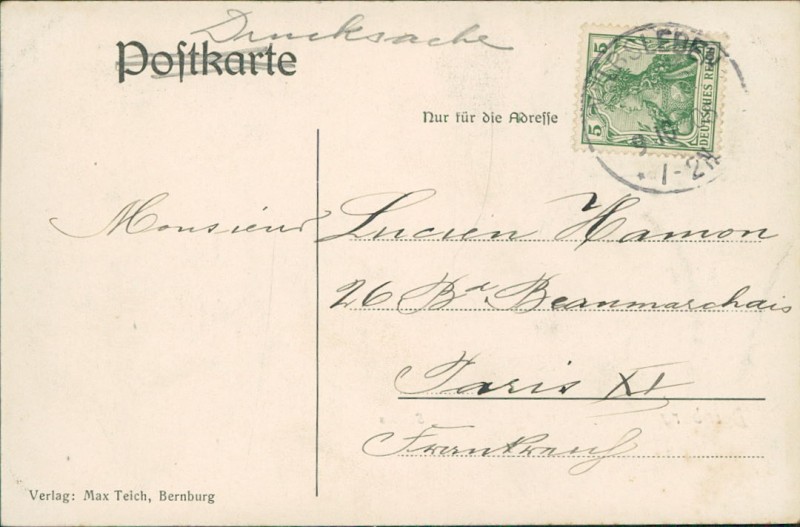 Drucksache
Postkarte
Nur für die Adresse
5 5
DEUTSCHES REICH
9 10
* 1-2N
Monsieur Lucien Hamon
26 Bd. Beaumarchais
Paris XI
Frankreich
Verlag: Max Teich, Bernburg